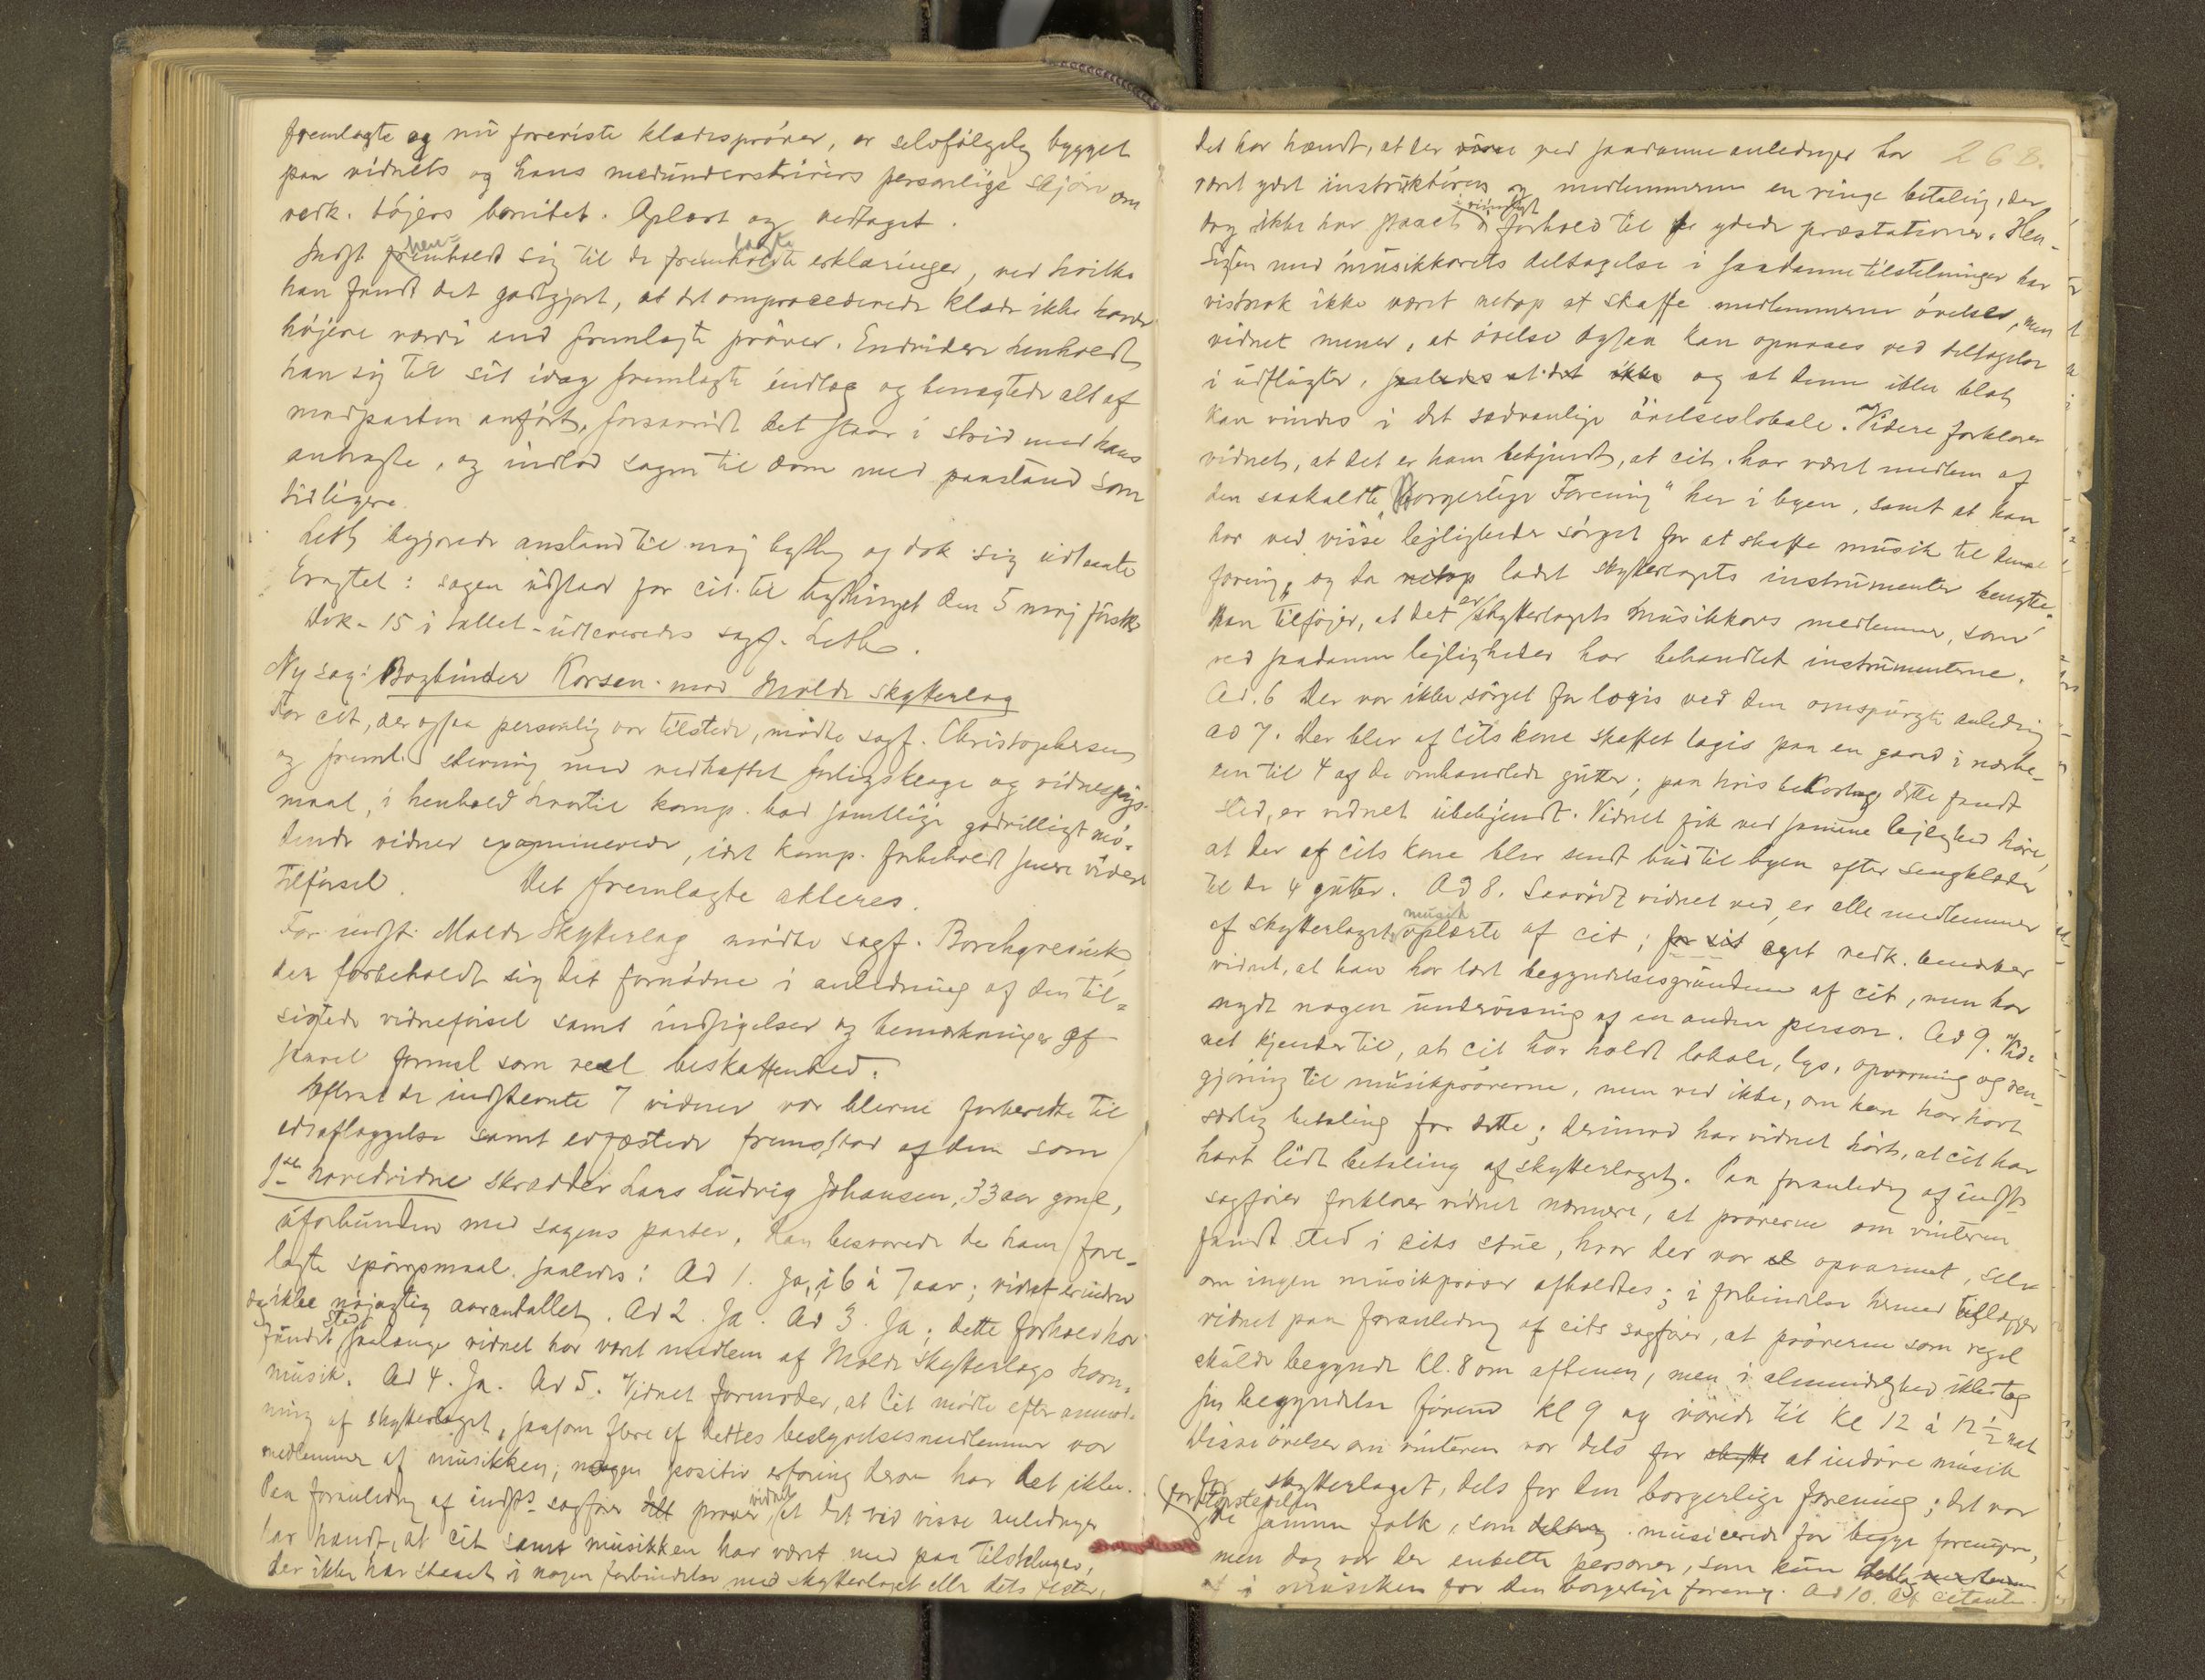 fremlagte og nu foreviste klædesprøver, er selvfølgelig bygget
paa vidnets og hans medunderskrivers personlige skjøn om
vedk. tøjers bonitet. Oplæst og vedtaget.
Indst. henholdt sig til de fremlagte erklæringer, ved hvilke
han fandt det godtgjort, at det omprocederede klæde ikke havde
højere værdi end fremlagte prøver. Endvidere henholdt
han sig til sit idag fremlagte indlæg og benægtede alt af
modparten anført, forsaavidt det staar i strid med hans
anbragte, og indlod sagen til dom med paastand som
tidligere.
Leth begjærede anstand til maj bything og dok. sig udlaante
Eragtet: sagen udstaar for cit. til bythinget den 5 maj førstk.
Dok. 15 i tallet udleveredes sagf. Leth.
Ny sag: Bogbinder Korsen mod Molde skytterlag
For cit, der ogsaa personlig var tilstede, mødte sagf. Christophersen
og freml. stevning med vedhæftet forligsklage og vidnespørgs-
maal, i henhold hvortil komp. bad samtlige godvilligt mø-
dende vidner examinerede, idet komp. forbeholdt senere videre
tilførsel. Det fremlagte akteres.
For indst. Molde Skytterlag mødte sagf. Borchgrevink,
der forbeholdt sig det fornødne i anledning af den til-
sigtede vidneførsel samt indsigelser og bemærkninger af
saavel formel som reel beskaffenhed.
Efterat de indstevnte 7 vidner var blevne forberedte til
edsaflæggelse samt edfæstede fremstod af dem som
1ste hovedvidne skrædder Lars Ludvig Johansen, 33 aar gml,
uforbunden med sagens parter. Han besvarede de ham fore-
lagte spørgsmaal saaledes: Ad 1. Ja, i 6 à 7 aar; vidnet erindrer
dog ikke nøjagtig aarantallet. Ad 2. Ja. Ad 3. Ja; dette forhold har
fundet sted saalænge vidnet har været medlem af Molde skytterlags horn-
musik. Ad 4. Ja. Ad 5. Vidnet formoder, at Cit mødte efter anmod-
ning af skytterlaget, saasom flere af dettes bestyrelsesmedlemmer var
medlemmer af musikken; nogen positiv erfaring derom har det ikke.
Paa foranledng af indsts sagfører prover vidnet, at det ved visse anledninger
har hændt, at cit samt musikken har været med paa tilstelninger,
der ikke har staaet i nogen forbindelse med skytterlaget eller dets fester,
268.
det har hændt, at der ved saadanne anledninger har
været ydet instruktøren og medlemmerne en ringe betaling, der
dog ikke har staaet i rimeligt forhold til de ydede præstationer. Hen-
sigten med musikkorets deltagelse i saadanne tilstelninger har
vistnok ikke været netop at skaffe medlemmerne øvelse, men
vidnet mener, at øvelse ogsaa kan opnaaes ved deltagelse
i udflugter, og at denne ikke blot
kan vindes i det sædvanlige øvelseslokale. Videre forklarer
vidnet, at det er ham bekjendt, at cit. har været medlem af
den saakaldte "Borgerlige Forening" her i byen, samt at han
har ved visse lejligheder sørget for at skaffe musik til denne
forening, og da ladet skytterlagets instrumenter benytte.
Han tilføjer, at det er skytterlagets musikkors medlemmer, som
ved saadanne lejligheder har behandlet instrumenterne.
Ad. 6 Der var ikke sørget for logis ved den omspurgte anledning
ad 7. Der blev af cits kone skaffet logis paa en gaard i nærhe-
den til 4 af de omhandlede gutter; paa hvis bekostning dette fandt
sted, er vidnet ubekjendt. Vidnet fik ved samme lejlighed høre,
at der af cits kone blev sendt bud til byen efter sengklæder
til de 4 gutter. Ad 8. Saavidt vidnet ved, er alle medlemmer
af skytterlagets musik oplærte af cit; sit eget vedk. bemærker
vidnet, at han har lært begyndelsesgrundene af cit, men har
nydt nogen undervisning af en anden person. Ad 9. Vid-
net kjender til, at cit har holdt lokale, lys, opvarmning og ren-
gjøring til musikprøverne, men ved ikke, om han har havt
særlig betaling for dette; derimod har vidnet hørt, at cit har
havt lidt betaling af skytterlaget. Paa foranledng af indsts
sagfører forklarer vidnet nærmere, at prøverne om vinteren
fandt sted i cits stue, hvor der var opvarmet, selv
om ingen musikprøver afholdtes; i forbindelse hermed tillægger
vidnet paa foranledng af cits sagfører, at prøverne som regel
skulde begynde kl. 8 om aftenen, men i almindelighed ikke tog
sin begyndelse førend kl 9 og varede til kl 12 à 12 1/2 nat
Disse øvelser om vinteren var dels for at indøve musik
for skytterlaget, dels for den borgerlige forening; det var
(for størstedelen) de samme folk, som musicerede for begge foreninger,
men dog var der enkelte personer, som kun
i musikken for den borgerlige forening. Ad 10. Af citanten